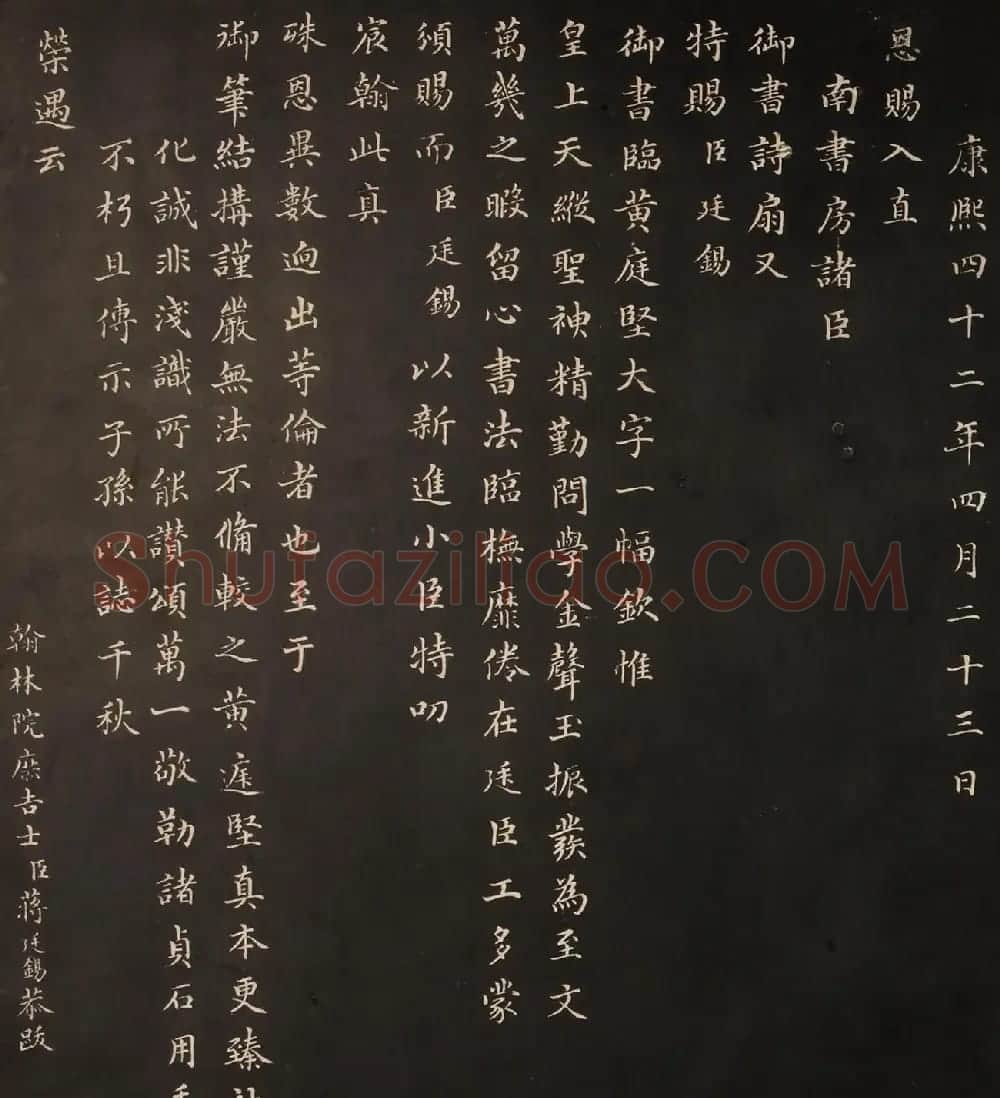 康熙四十二年四月二十三日
恩賜入直
南書房諸臣
御書詩扇又
特賜臣廷錫
御書臨黄庭堅大字一幅欽惟
皇上天縱聖神精勤問學金聲玉振發為至文
萬幾之暇留心書法臨橅靡倦在廷臣工多蒙
頒賜而臣廷錫以新進小臣特叨
宸翰此真
殊恩異數迥出等倫者也至于
御筆結搆謹嚴無法不備較之黄庭堅真本更臻
化誠非淺識所能讃頌萬一敬勒諸貞石用
不朽且傳示子孫以誌千秋
榮遇云
翰林院庶吉士臣蔣廷錫恭跋
Shufaziliao.COM